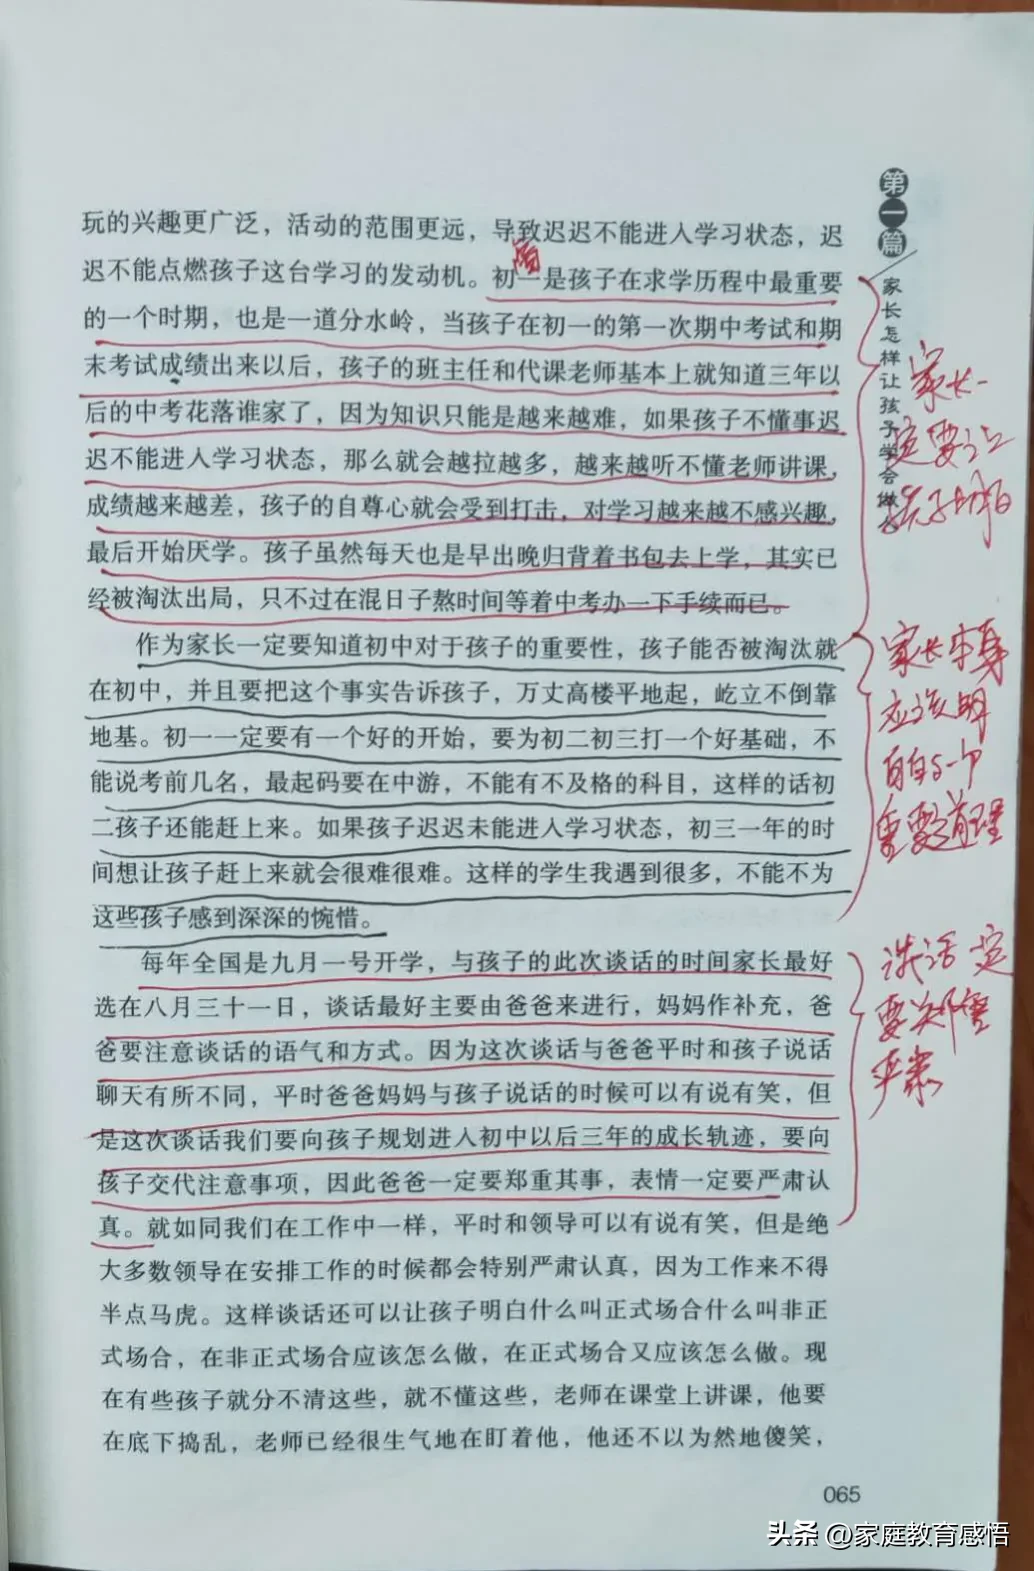 玩的兴趣更广泛，活动的范围更远，导致迟迟不能进入学习状态，迟
迟不能点燃孩子这台学习的发动机。初一是孩子在求学历程中最重要
的一个时期，也是一道分水岭，当孩子在初一的第一次期中考试和期
末考试成绩出来以后，孩子的班主任和代课老师基本上就知道三年以
后的中考花落谁家了，因为知识只能是越来越难，如果孩子不懂事迟
迟不能进入学习状态，那么就会越拉越多，越来越听不懂老师讲课，
成绩越来越差，孩子的自尊心就会受到打击，对学习越来越不感兴趣，
最后开始厌学。孩子虽然每天也是早出晚归背着书包去上学，其实已
经被淘汰出局，只不过在混日子熬时间等着中考办一下手续而已。
作为家长一定要知道初中对于孩子的重要性，孩子能否被淘汰就
在初中，并且要把这个事实告诉孩子，万丈高楼平地起，屹立不倒靠
地基。初一一定要有一个好的开始，要为初二初三打一个好基础，不
能说考前几名，最起码要在中游，不能有不及格的科目，这样的话初
二孩子还能赶上来。如果孩子迟迟未能进入学习状态，初三一年的时
间想让孩子赶上来就会很难很难。这样的学生我遇到很多，不能不为
这些孩子感到深深的惋惜。
每年全国是九月一号开学，与孩子的此次谈话的时间家长最好
选在八月三十一日，谈话最好主要由爸爸来进行，妈妈作补充，爸
爸要注意谈话的语气和方式。因为这次谈话与爸爸平时和孩子说话
聊天有所不同，平时爸爸妈妈与孩子说话的时候可以有说有笑，但
是这次谈话我们要向孩子规划进入初中以后三年的成长轨迹，要向
孩子交代注意事项，因此爸爸一定要郑重其事，表情一定要严肃认
真。就如同我们在工作中一样，平时和领导可以有说有笑，但是绝
大多数领导在安排工作的时候都会特别严肃认真，因为工作来不得
半点马虎。这样谈话还可以让孩子明白什么叫正式场合什么叫非正
式场合，在非正式场合应该怎么做，在正式场合又应该怎么做。现
在有些孩子就分不清这些，就不懂这些，老师在课堂上讲课，他要
在底下捣乱，老师已经很生气地在盯着他，他还不以为然地傻笑，
第一篇
家长怎样让孩子学会做
家长一
定要让
孩子明白
家长本身
应该明
白的一个
重要道理
谈话一定
要郑重
严肃
065
头条 @家庭教育感悟